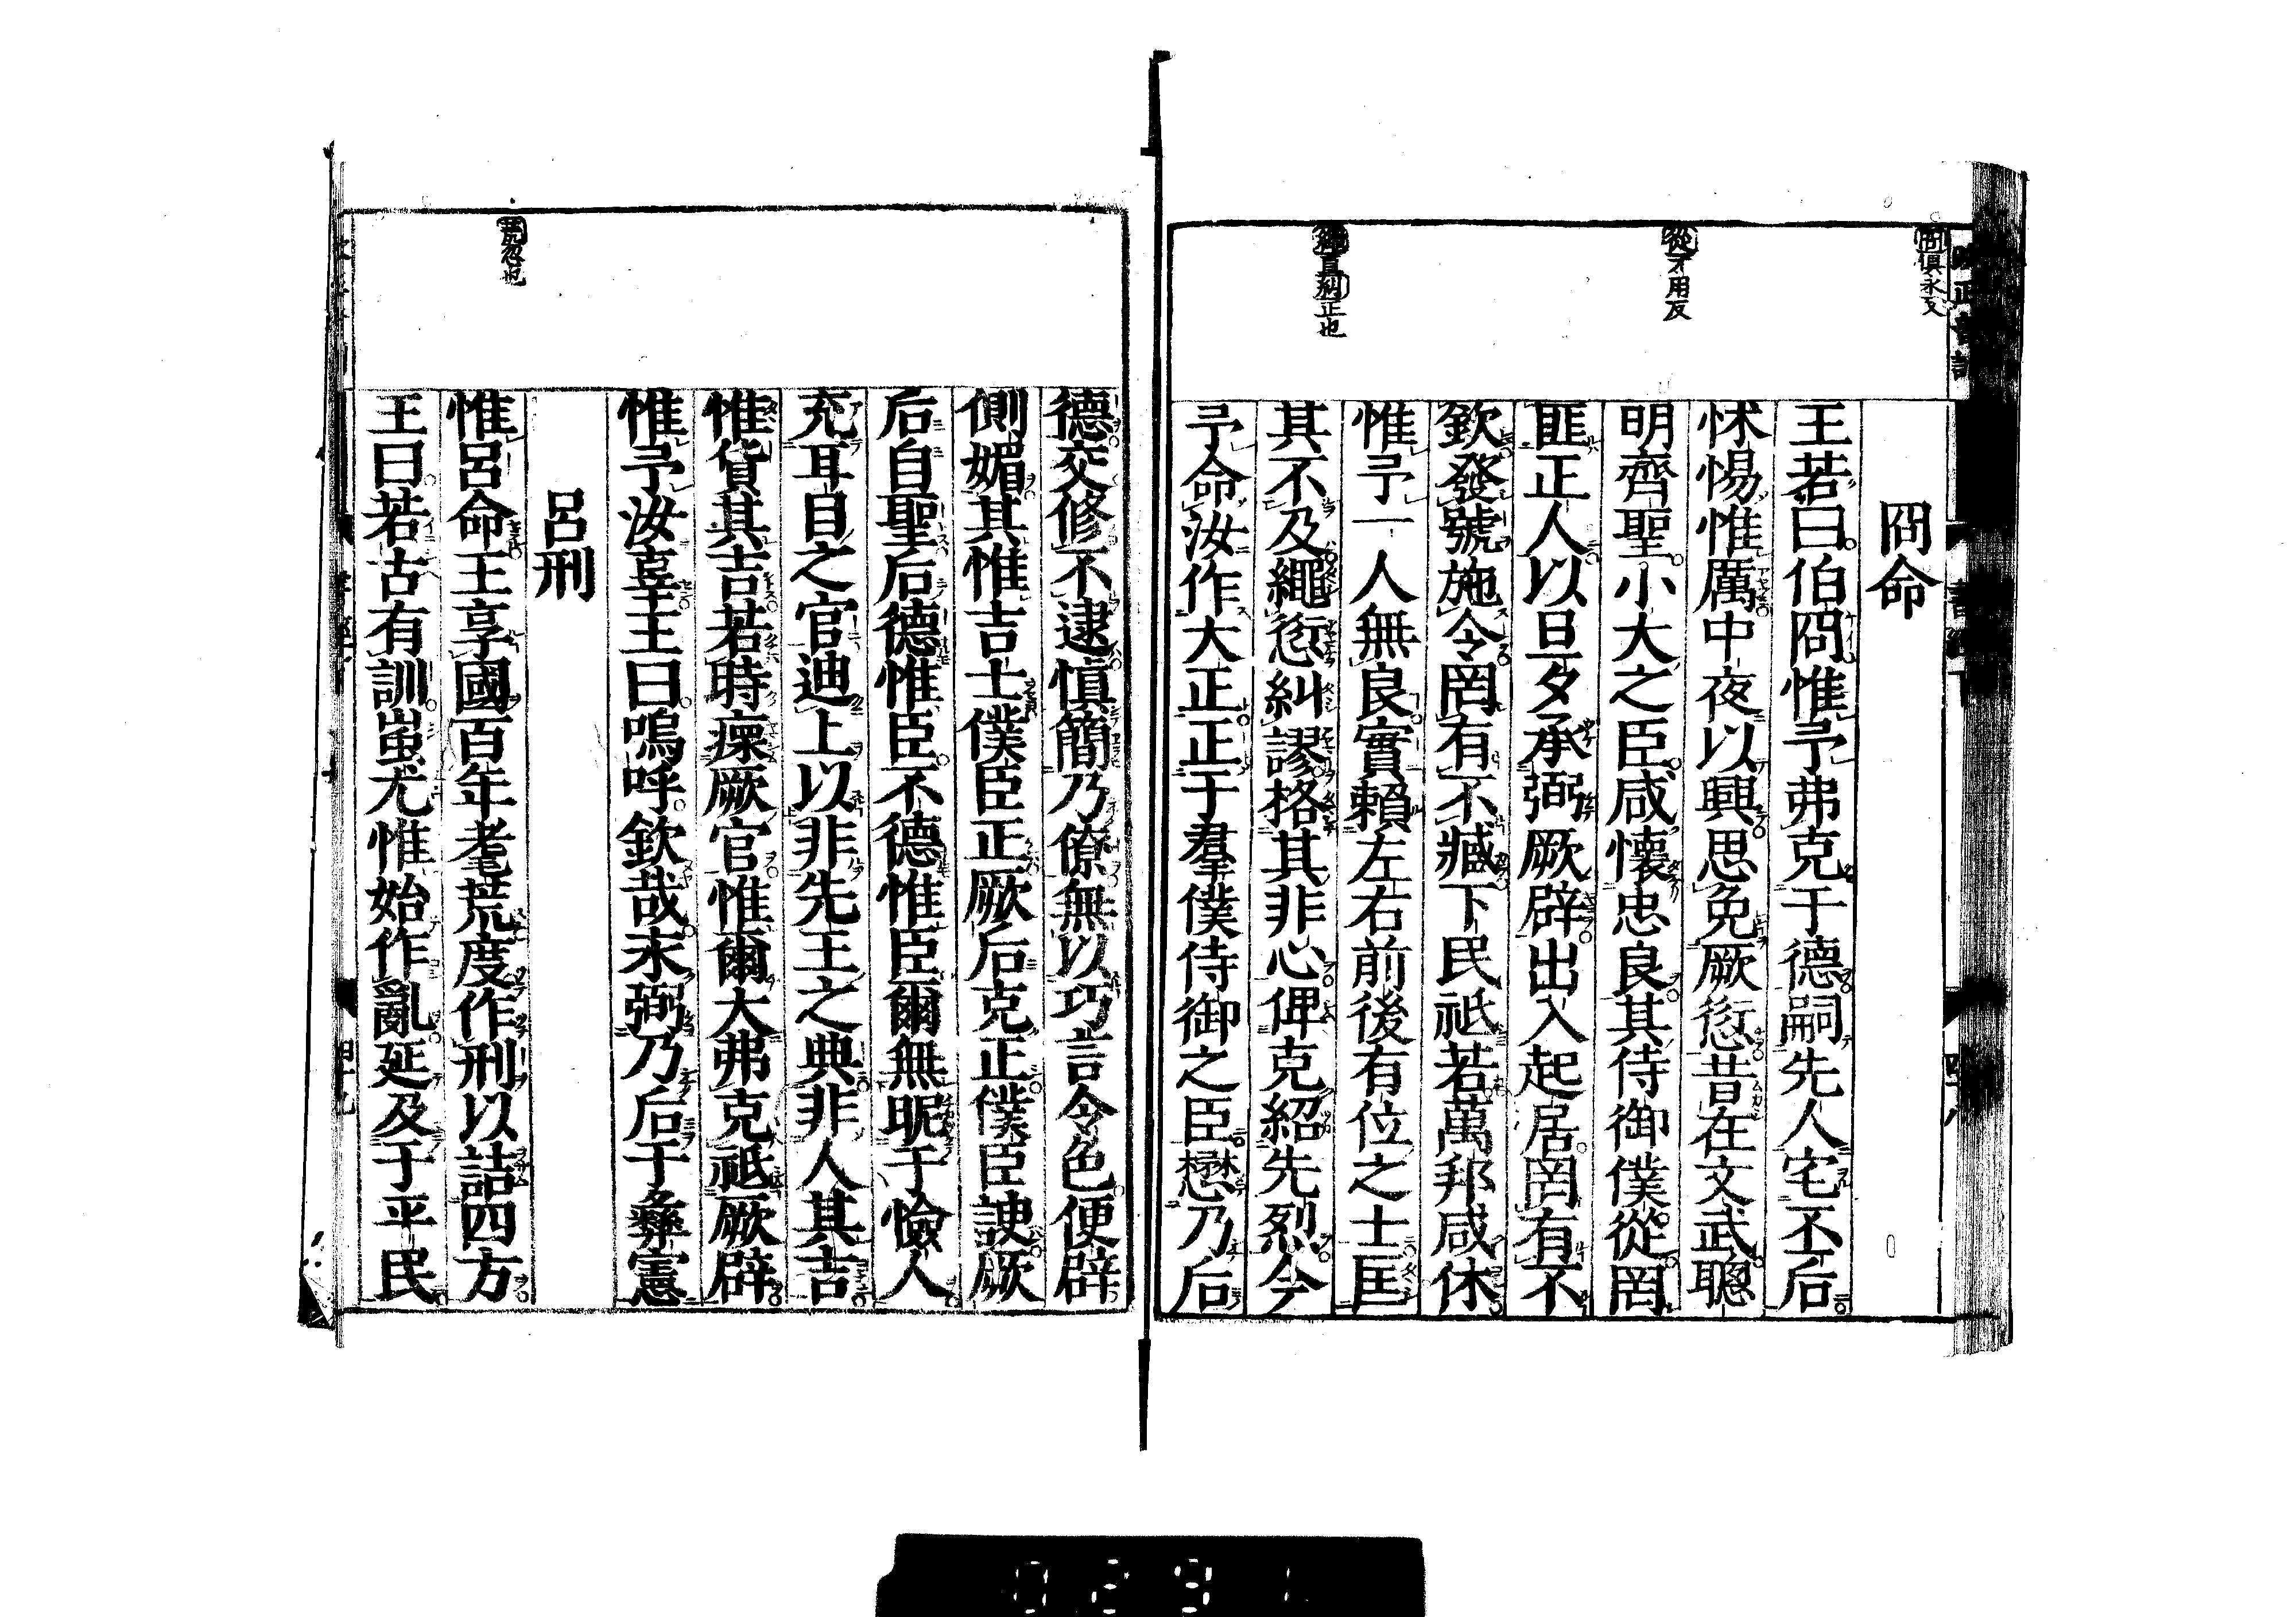 冏俱永反
從才用反
繩直糾正也
冏命
王若曰伯冏惟予弗克于德嗣先人宅丕后
怵惕惟厲中夜以興思免厥愆昔在文武聰
明齊聖小大之臣咸懷忠良其侍御僕從罔
匪正人以旦夕承弼厥辟出入起居罔有不
欽發號施令罔有不臧下民祇若萬邦咸休
惟予一人無良實賴左右前後有位之士匡
其不及繩愆糾謬格其非心俾克紹先烈今
予命汝作大正正于羣僕侍御之臣懋乃后
德交修不逮慎簡乃僚無以巧言令色便辟
側媚其惟吉士僕臣正厥后克正僕臣諛厥
后自聖后德惟臣不德惟臣爾無昵于憸人
充耳目之官迪上以非先王之典非人其吉
惟貨其吉若時瘝厥官惟爾大弗克祗厥辟
惟予汝辜王曰嗚呼欽哉永弼乃后于彝憲
呂刑
惟呂命王享國百年耄荒度作刑以詰四方
王曰若古有訓蚩尤惟始作亂延及于平民
0291